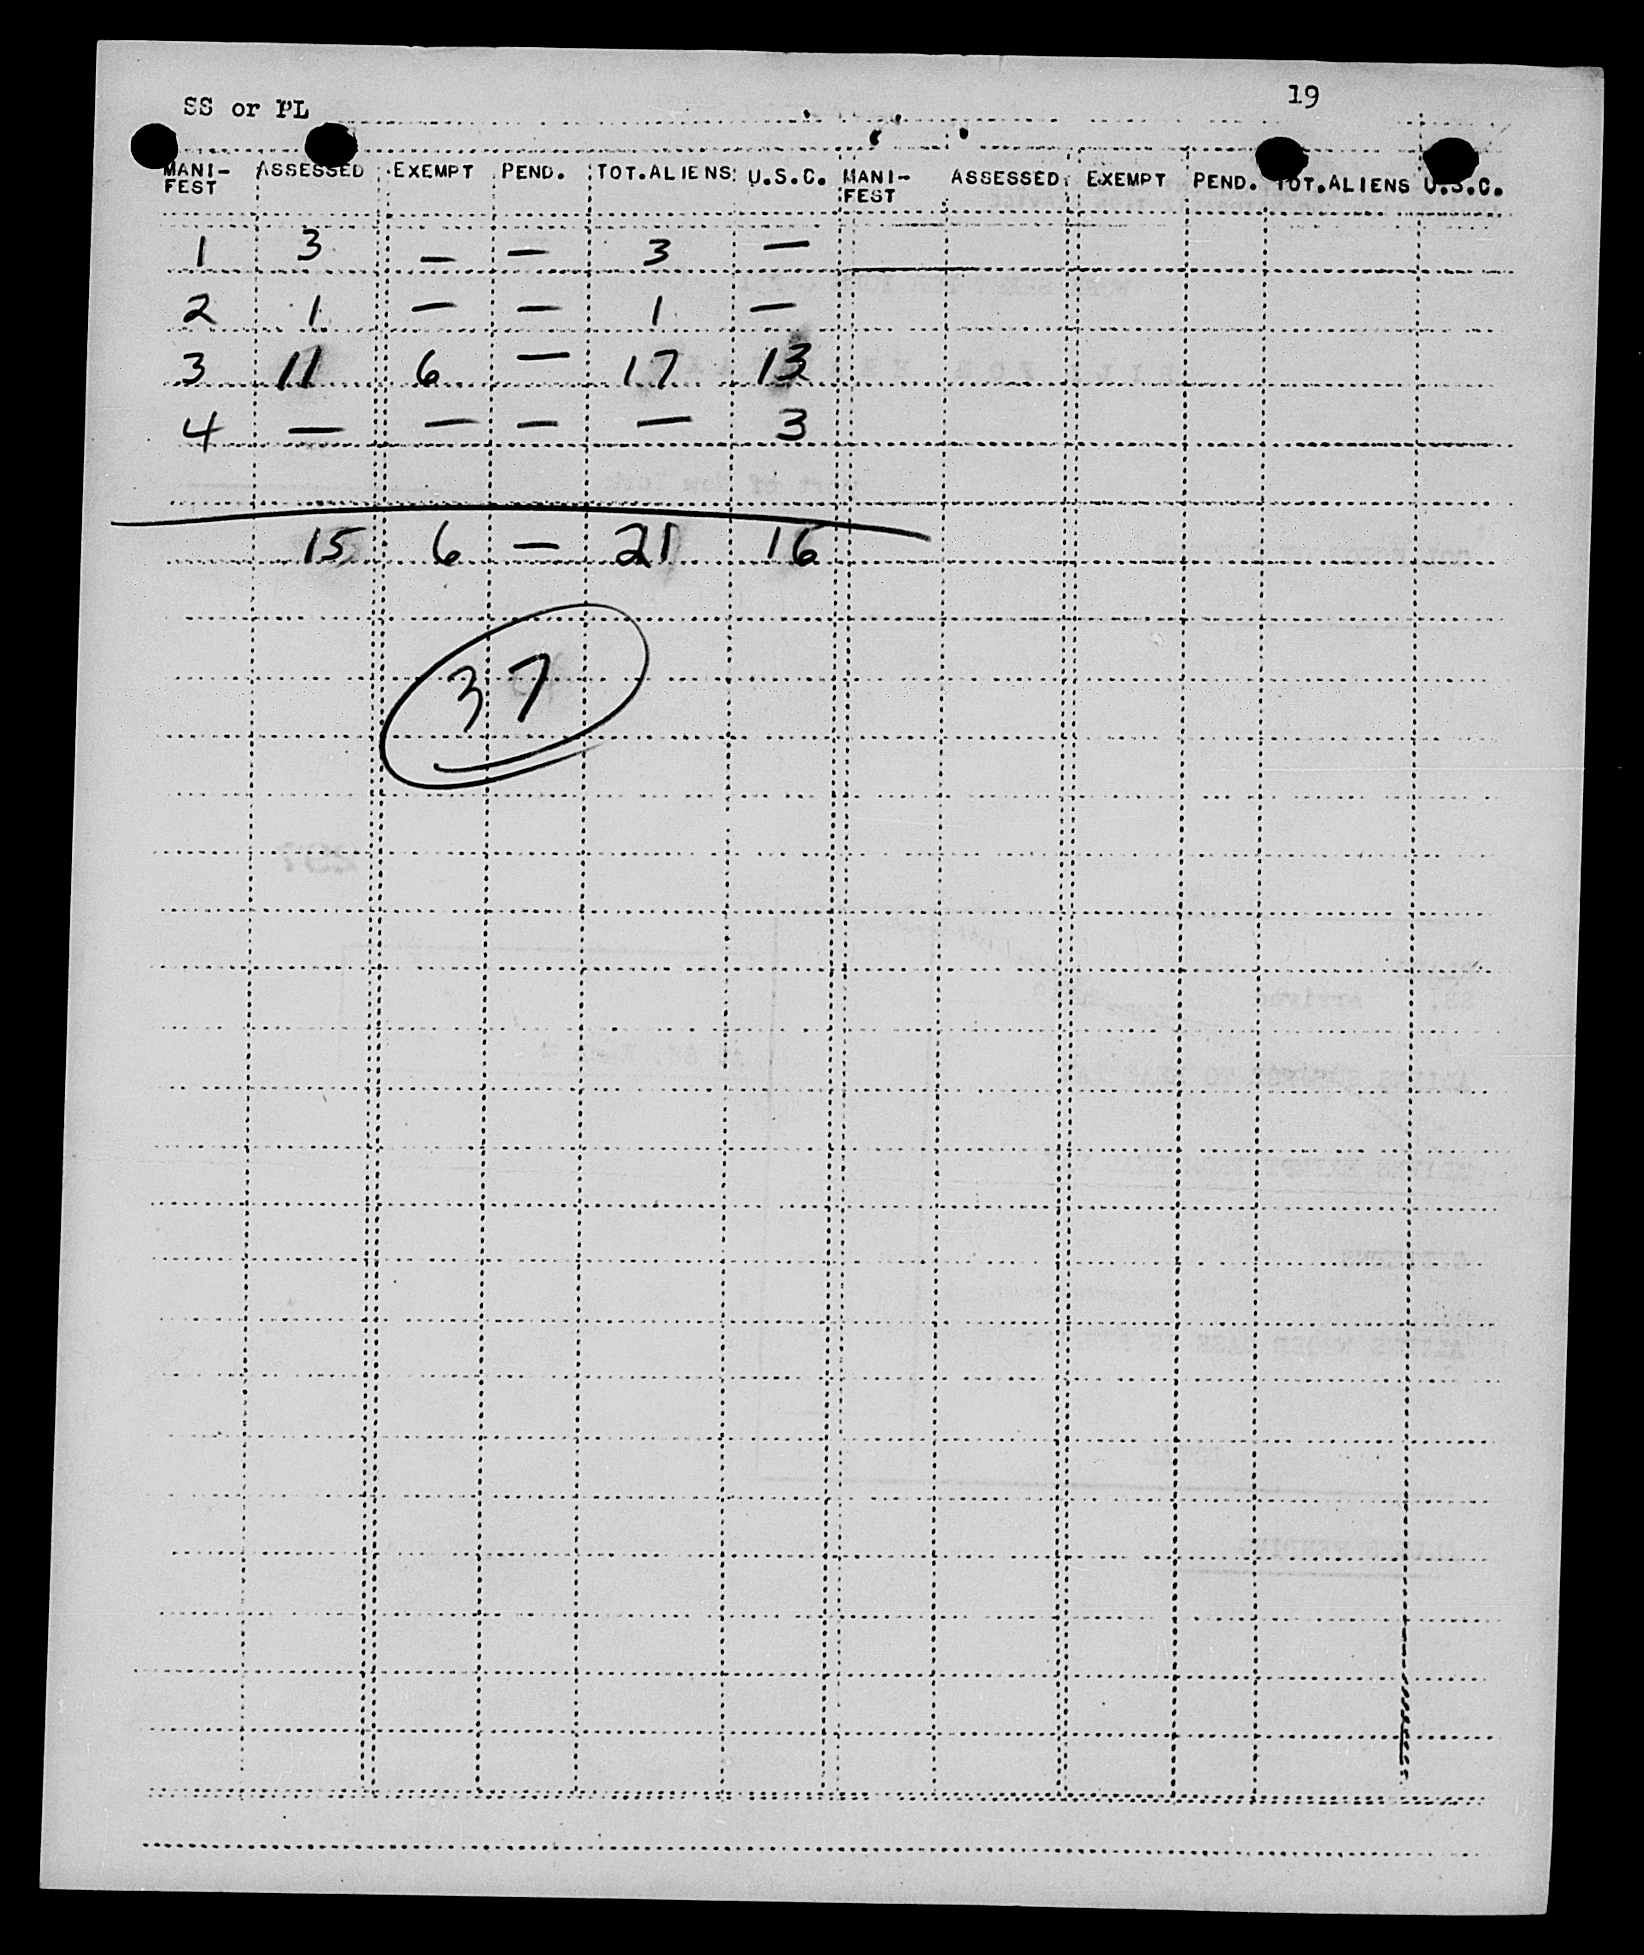 SS or PL 19
MANI-FEST ASSESSED EXEMPT PEND. TOT.ALIENS U.S.C. MANI-FEST ASSESSED EXEMPT PEND. TOT.ALIENS U.S.C.
1 3 — — 3 —
2 1 — — 1 —
3 11 6 — 17 13
4 — — — — 3
15 6 — 21 16
37